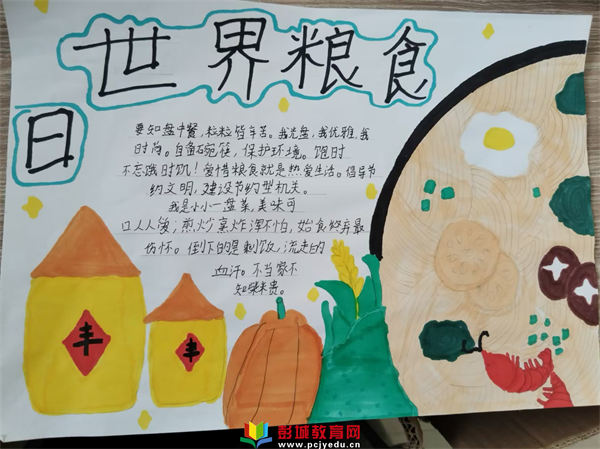 世界粮食
日
要知盘中餐，粒粒皆辛苦。我光盘，我优雅，我
时尚。自备碗筷，保护环境。饱时
不忘饿时饥！爱惜粮食就是热爱生活。倡导节
约文明，建设节约型机关。
我是小小一盘菜，美味可
口人人爱；煎炒烹炸浑不怕，始食终弃最
伤怀。倒下的是剩饭，流走的
血汗。不当家不
知柴米贵。
丰
丰
彭城教育网
www.pcjyedu.cn